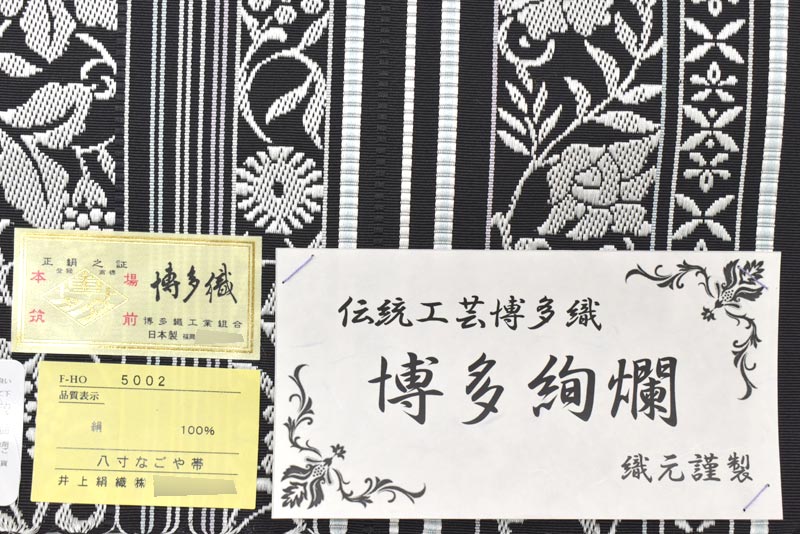 正絹之証
登録 商標
本場
筑前
博多織
博多織工業組合
日本製 福岡
F-HO 5002
品質表示
絹 100%
八寸なごや帯
井上絹織㈱
伝統工芸博多織
博多絢爛
織元謹製